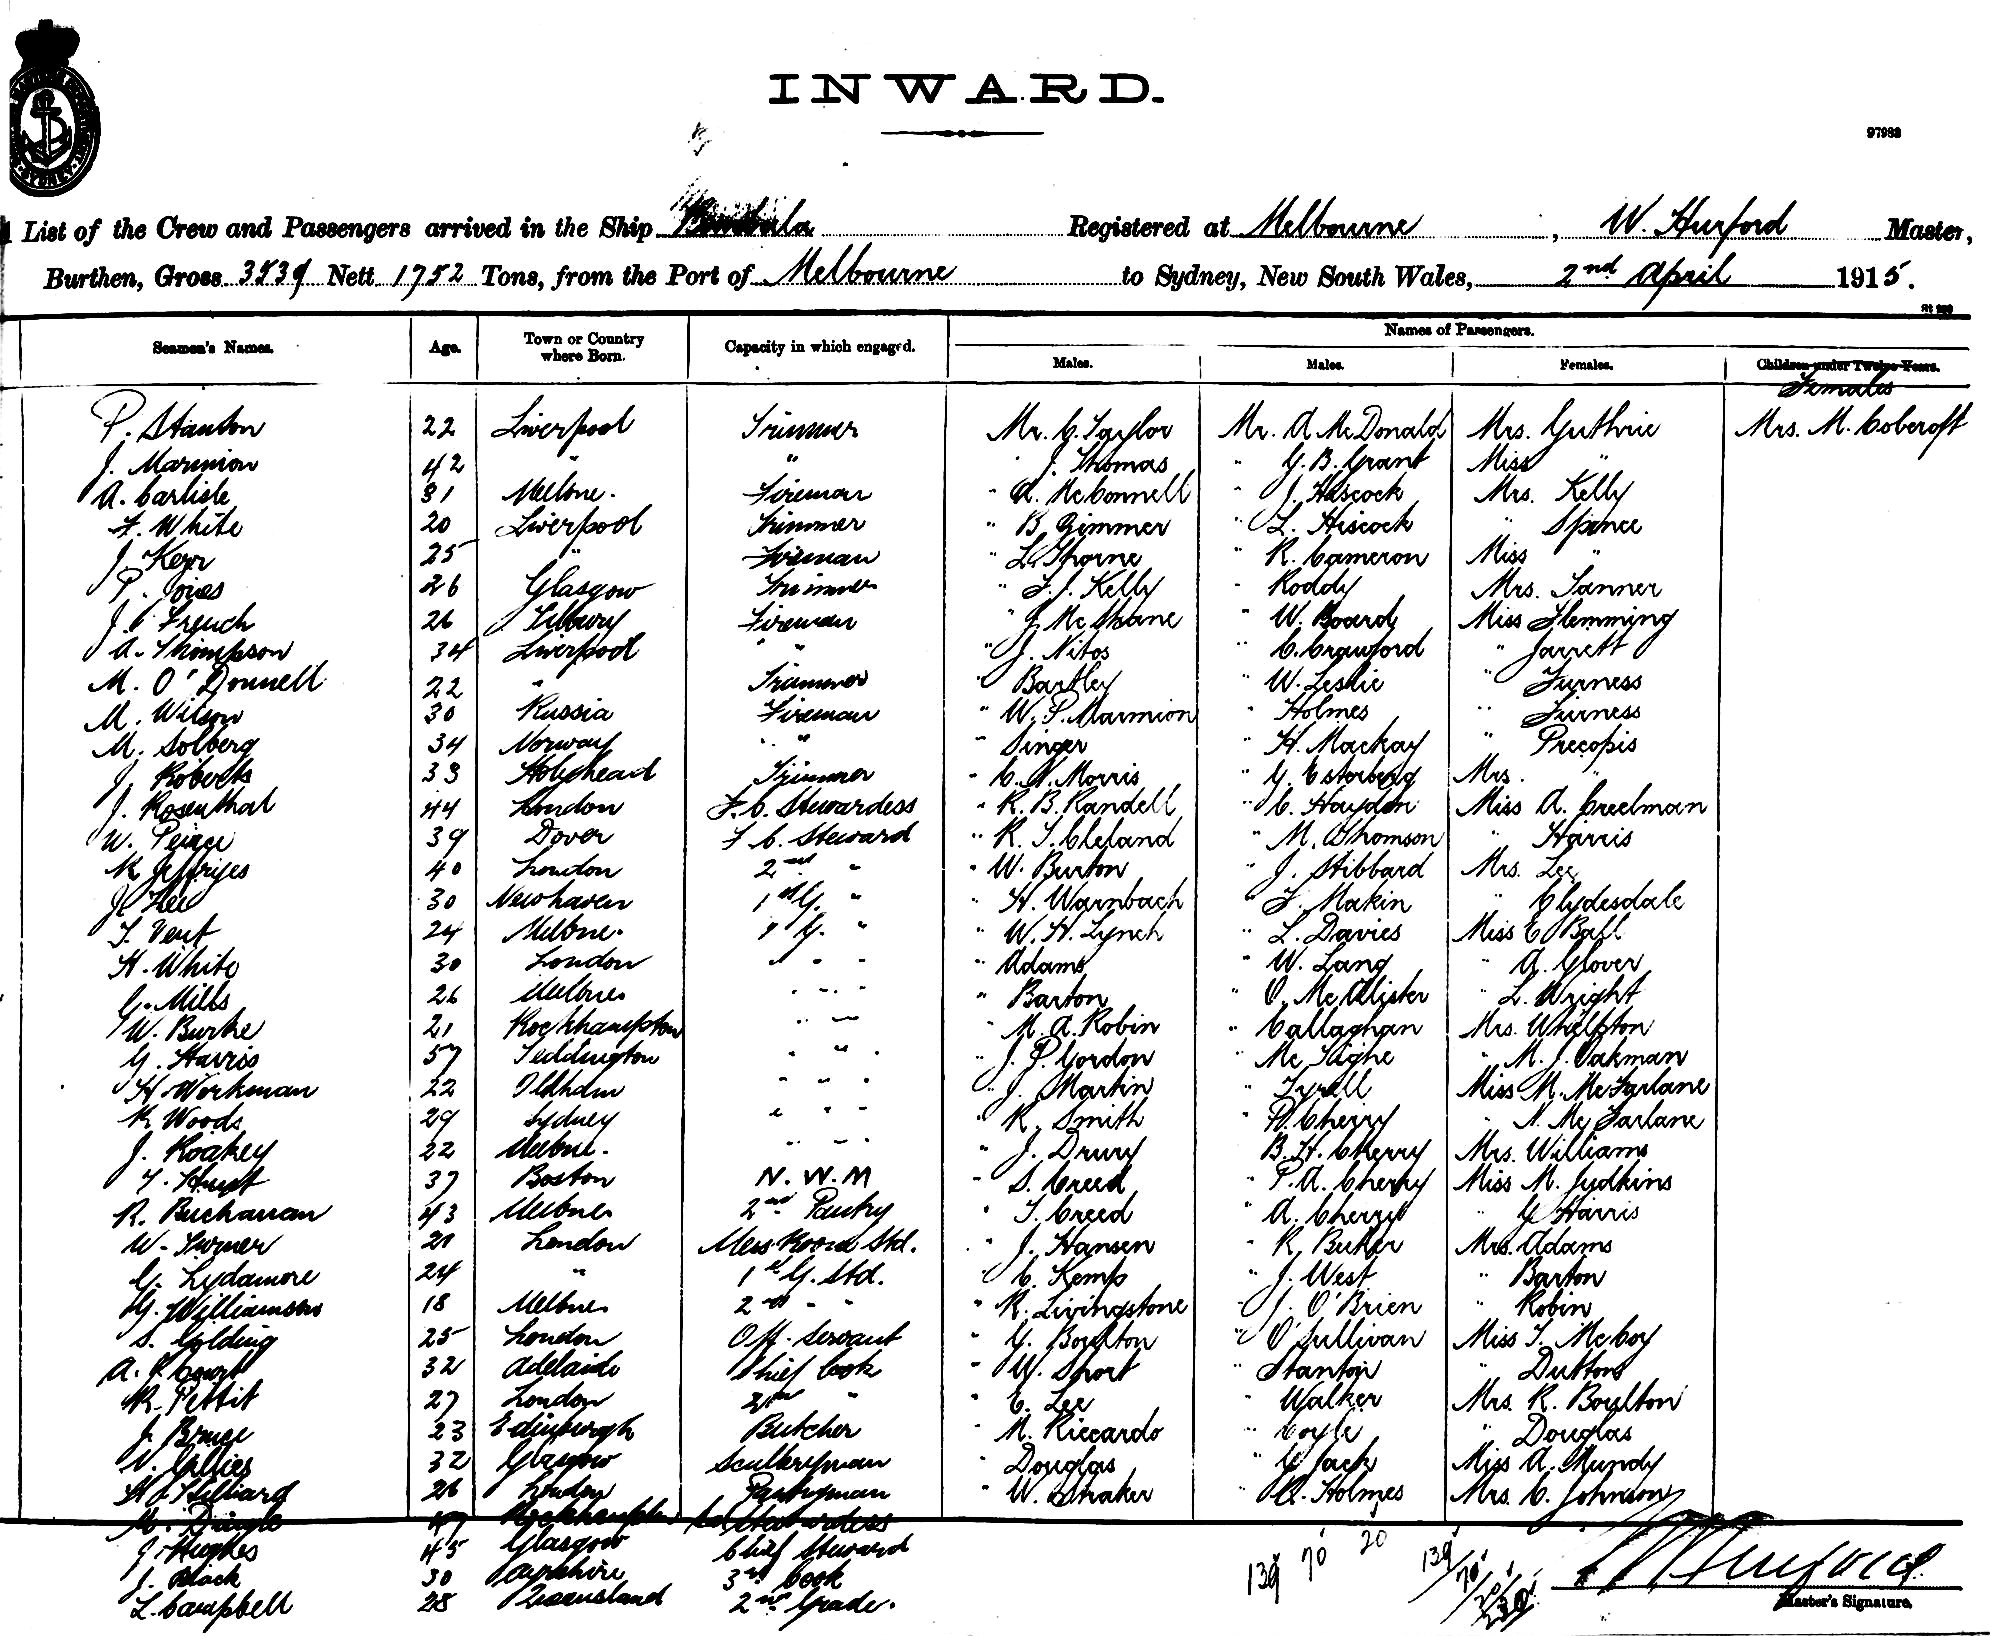 INWARD.
97983
List of the Crew and Passengers arrived in the Ship Bombala Registered at Melbourne, W. Hurford Master,
Burthen, Gross 3539 Nett 1752 Tons, from the Port of Melbourne to Sydney, New South Wales, 2nd April 1915.
Seamen's Names. Age. Town or Country where Born. Capacity in which engaged. Names of Passengers.
Males. Males. Females. Children under Twelve Years.
Females
P. Stanton 22 Liverpool Trimmer Mr. C. Taylor Mr. A McDonald Mrs. Guthrie Mrs. M. Cobcroft
J. Marmion 42 " " J. Thomas " G. B. Grant Miss "
A. Carlisle 31 Melbne. Fireman " A. McConnell " J. Hiscock Mrs. Kelly
F. White 20 Liverpool Trimmer " B. Gimmer " L. Hiscock " Spence
J. Kerr 25 " Fireman " L. Thorne " R. Cameron Miss "
P. Jones 26 Glasgow Trimmer " F. J. Kelly " Roddy Mrs. Tanner
J. C French 26 Tilbury Fireman " J. McShane " W. Board Miss Flemming
A. Thompson 34 Liverpool " " " J. Nitos " C. Crawford " Jarrett
M. O'Donnell 22 " Trimmer " Bartley " W. Leslie " Furness
M. Wilson 30 Russia Fireman " W. P. Marmion " Holmes " Furness
M. Solberg 34 Norway " " " Singer " H. Mackay " Precopis
J. Roberts 33 Holyhead Trimmer " C. N. Morris " G. Estorberg Mrs. "
J. Rosenthal 44 London F. C. Stewardess " R. B. Randell " C. Haydon Miss A. Creelman
W. Peirce 39 Dover F. C. Steward " R. T. Cleland " M. Thomson " Harris
R. Jeffryes 40 London 2nd " " W. Burton " J. Hibbard Mrs. Lee
J. Lee 30 Newhaven 1st G. " " H. Warnbach " F. Makin " Clydesdale
T. Vent 24 Melbne. " G. " " W. H. Lynch " L. Davies Miss E Ball
H. White 30 London " " " " Adams " W. Lang " A. Glover
G. Mills 26 Melbne. " " " " Barton " O. McAllister " L. Wright
W. Burke 21 Rockhampton " " " M. A. Robin " Callaghan Mrs. Whelpton
G. Harris 57 Teddington " " " " J. P. Gordon " McTighe " M. J. Oakman
H. Workman 22 Oldham " " " " J. Martin " Tyrell Miss M. McFarlane
R. Woods 29 Sydney " " " " R. Smith " P. Cherry " N. McFarlane
J. Roakey 22 Melbne. " " " " J. Drury " B. H. Cherry Mrs. Williams
37 Boston N. W. M " S. Creed " P. A. Cherry Miss M. Judkins
R. Buchanan 43 Melbne. 2nd Pantry " T. Creed " A. Cherry " G Harris
W. Turner 21 London Mess Room Std. " J. Hansen " R. Mrs. Adams
G. Lydamore 24 " 1st G. Std. " C. Kemp " J. West " Barton
G. Williamson 18 Melbne. 2nd " " " R. Livingstone " J. O'Brien " Robin
S. Golding 25 London Off. Servant " G. Boulton " O'Sullivan Miss T. McCoy
A. 32 Adelaide Chief Cook " W. Short " Stanton " Dutton
R. Pettit 27 London 2nd " " E. Lee " Walker Mrs. R. Boulton
J. Bruce 23 Edinburgh Butcher " M. Riccardo " Coyle " Douglas
N. Gillies 32 Glasgow Sculleryman " Douglas " G Jack Miss A. Mundy
H. J. Hilliard 26 London Pantryman " W. Straker " A. Holmes Mrs. C. Johnson
M. Dingle 47 Rockhampton Stewardess
J. Hughes 45 Glasgow Chief Steward 139 70 20 139
J. Black 30 Ayrshire 3rd Cook 70
L. Campbell 28 Queensland 2nd Grade.
W Hurford
Master's Signature.